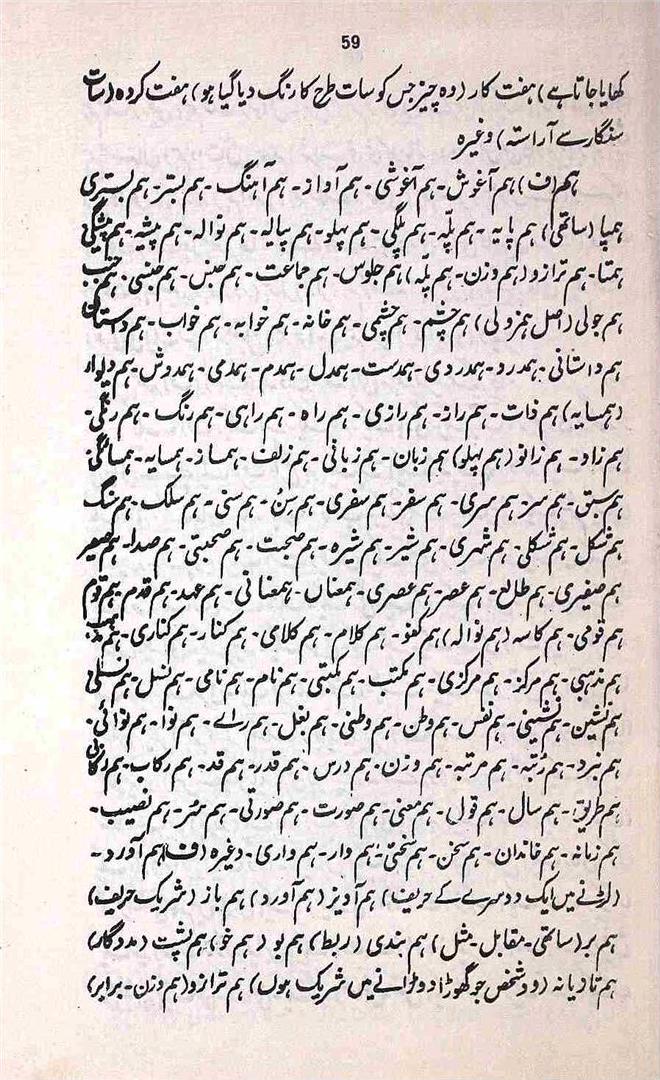 59
کھایا جاتا ہے) ہفت کار (وہ چیز جس کو سات طرح کا رنگ دیا گیا ہو) ہفت کردہ (سات
سنگار سے آراستہ) وغیرہ
ہم (ف) ہم آغوش۔ ہم آغوشی۔ ہم آواز۔ ہم آہنگ۔ ہم بستر۔ ہم بستری
ہمپا (ساتھی) ہم پایہ۔ ہم پلّہ۔ ہم پلگی۔ ہم پہلو۔ ہم پیالہ۔ ہم نوالہ۔ ہم پیشہ۔ ہم پیشگی
ہمتا۔ ہم ترازو (ہم وزن۔ ہم پلّہ) ہم جلوس۔ ہم جماعت۔ ہم جنس۔ ہم جنسی۔ ہم جنب
ہم جولی (اصل ہمزولی) ہم چشم۔ ہم چشمی۔ ہم خانہ۔ ہم خوابہ۔ ہم خواب۔ ہم دستان
ہم داستانی۔ ہمدرد۔ ہمدردی۔ ہمدست۔ ہمدل۔ ہمدم۔ ہمدمی۔ ہمدوش۔ ہم دیوار
(ہمسایہ) ہم ذات۔ ہم راز۔ ہم رازی۔ ہم راہ۔ ہم راہی۔ ہم رنگ۔ ہم رنگی۔
ہم زاد۔ ہم زانو (ہم پہلو) ہم زبان۔ ہم زبانی۔ ہم زلف۔ ہمساز۔ ہمسایہ۔ ہمسائگی
ہم سبق۔ ہم سر۔ ہم سری۔ ہم سفر۔ ہم سفری۔ ہم سِنُ۔ ہم سنی۔ ہم سلک۔ ہم سنگ
ہم شکل۔ ہم شکلی۔ ہم شہری۔ ہم شیر۔ ہم شیرہ۔ ہم صحبت۔ ہم صحبتی۔ ہم صدا۔ ہم صفیر
ہم صفیری۔ ہم طالع۔ ہم عصر۔ ہم عصری۔ ہمعناں۔ ہمعنانی۔ ہم عہد۔ ہم قدم۔ ہم قوم
ہم قومی۔ ہم کاسہ (ہم نوالہ) ہم کفو۔ ہم کلام۔ ہم کلامی۔ ہم کنار۔ ہم کناری۔ ہم مذہب
ہم مذہبی۔ ہم مرکز۔ ہم مرکزی۔ ہم مکتب۔ ہم مکتبی۔ ہم نام۔ ہم نامی۔ ہم نسل۔ ہم نسلی
ہم نشین۔ ہم نشینی۔ ہم نفس۔ ہم وطن۔ ہم وطنی۔ ہم بغل۔ ہم راے۔ ہم نوا۔ ہم نوائی۔
ہم نبرد۔ ہم رُتبہ۔ ہم مرتبہ۔ ہم وزن۔ ہم درس۔ ہم قدر۔ ہم قد۔ ہم رکاب۔ ہم رکابی
ہم طریق۔ ہم سال۔ ہم قول۔ ہم معنی۔ ہم صورت۔ ہم صورتی۔ ہم سُر۔ ہم نصیب۔
ہم زمانہ۔ ہم خاندان۔ ہم سخن۔ ہم سخنی۔ ہم دار۔ ہم واری۔ وغیرہ (ف) ہم آورد۔
(لڑنے میں ایک دوسرے کے حریف) ہم آویز (ہم آورد) ہم باز (شریک حریف)
ہم بر (ساتھی۔ مقابل۔ مثل) ہم بندی (ربط) ہم بو (ہم خو) ہم پشت (مددگار)
ہم تادیانہ (وہ شخص جو گھوڑا دوڑانے میں شریک ہوں) ہم ترازو (ہم وزن۔ برابر)